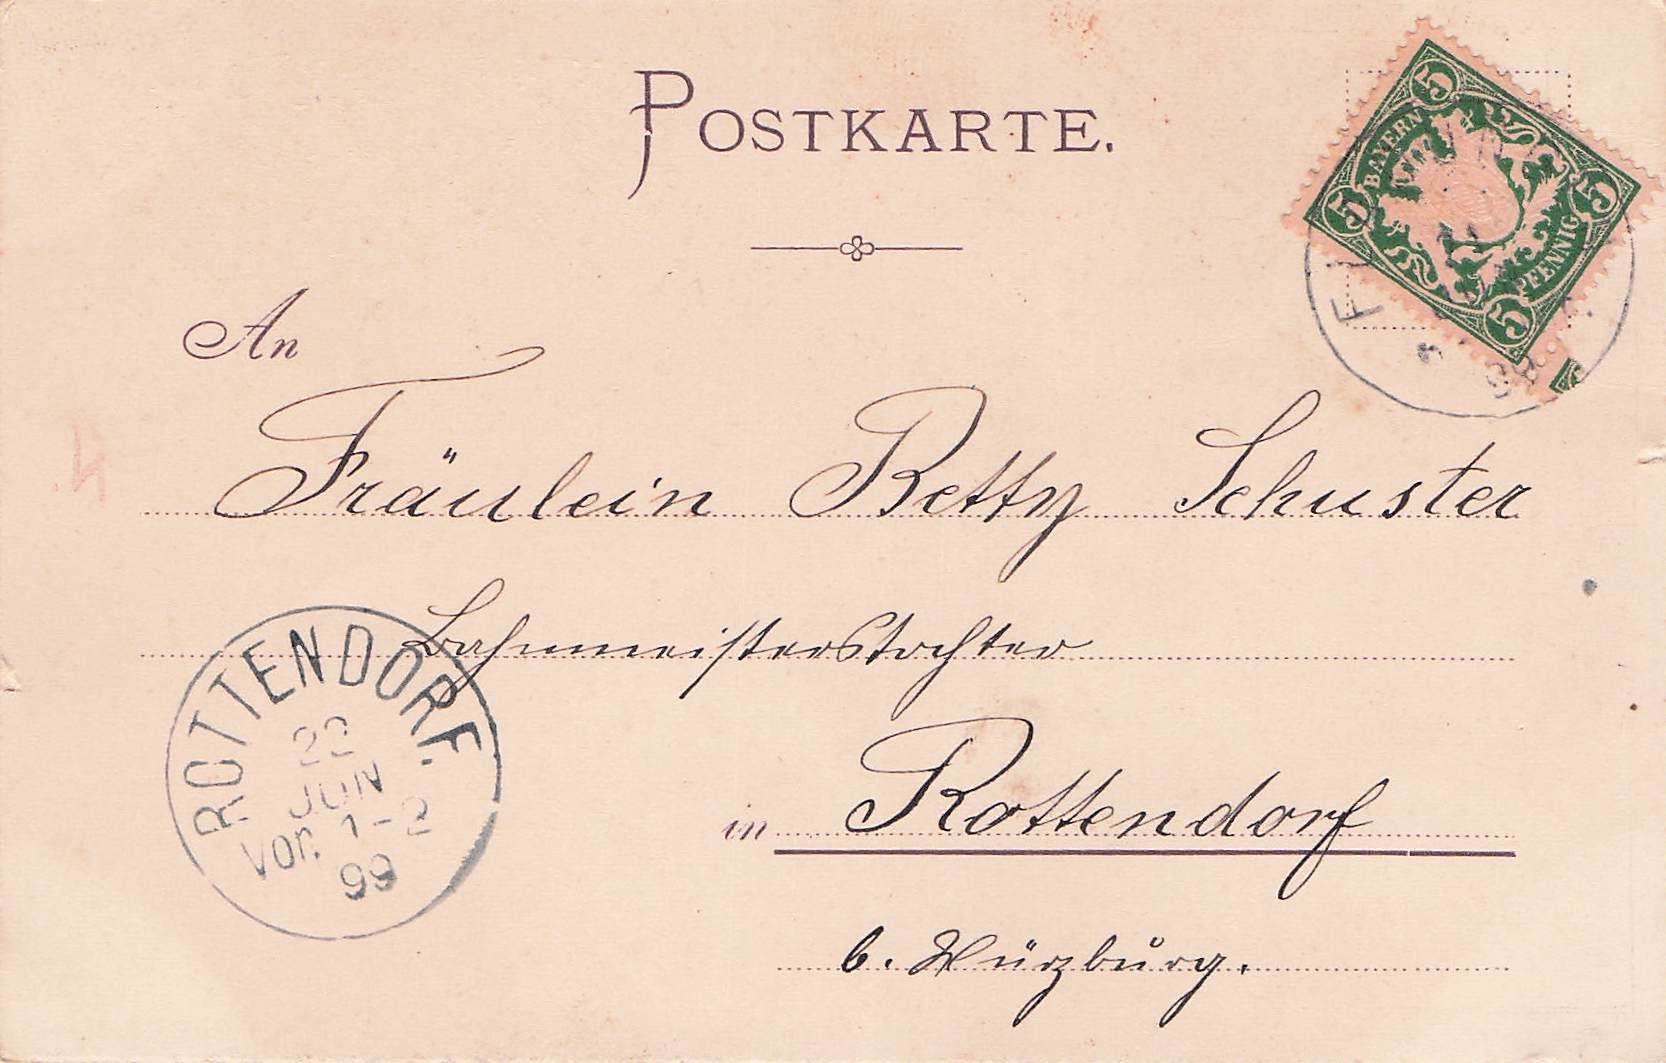 POSTKARTE.
5
BAYERN
5
5
PFENNIG
5
99
An
Fräulein Betty Schuster
Bahnmeisterstochter
in Rottendorf
b. Würzburg.
ROTTENDORF.
22
JUN
Vor. 1-2
99